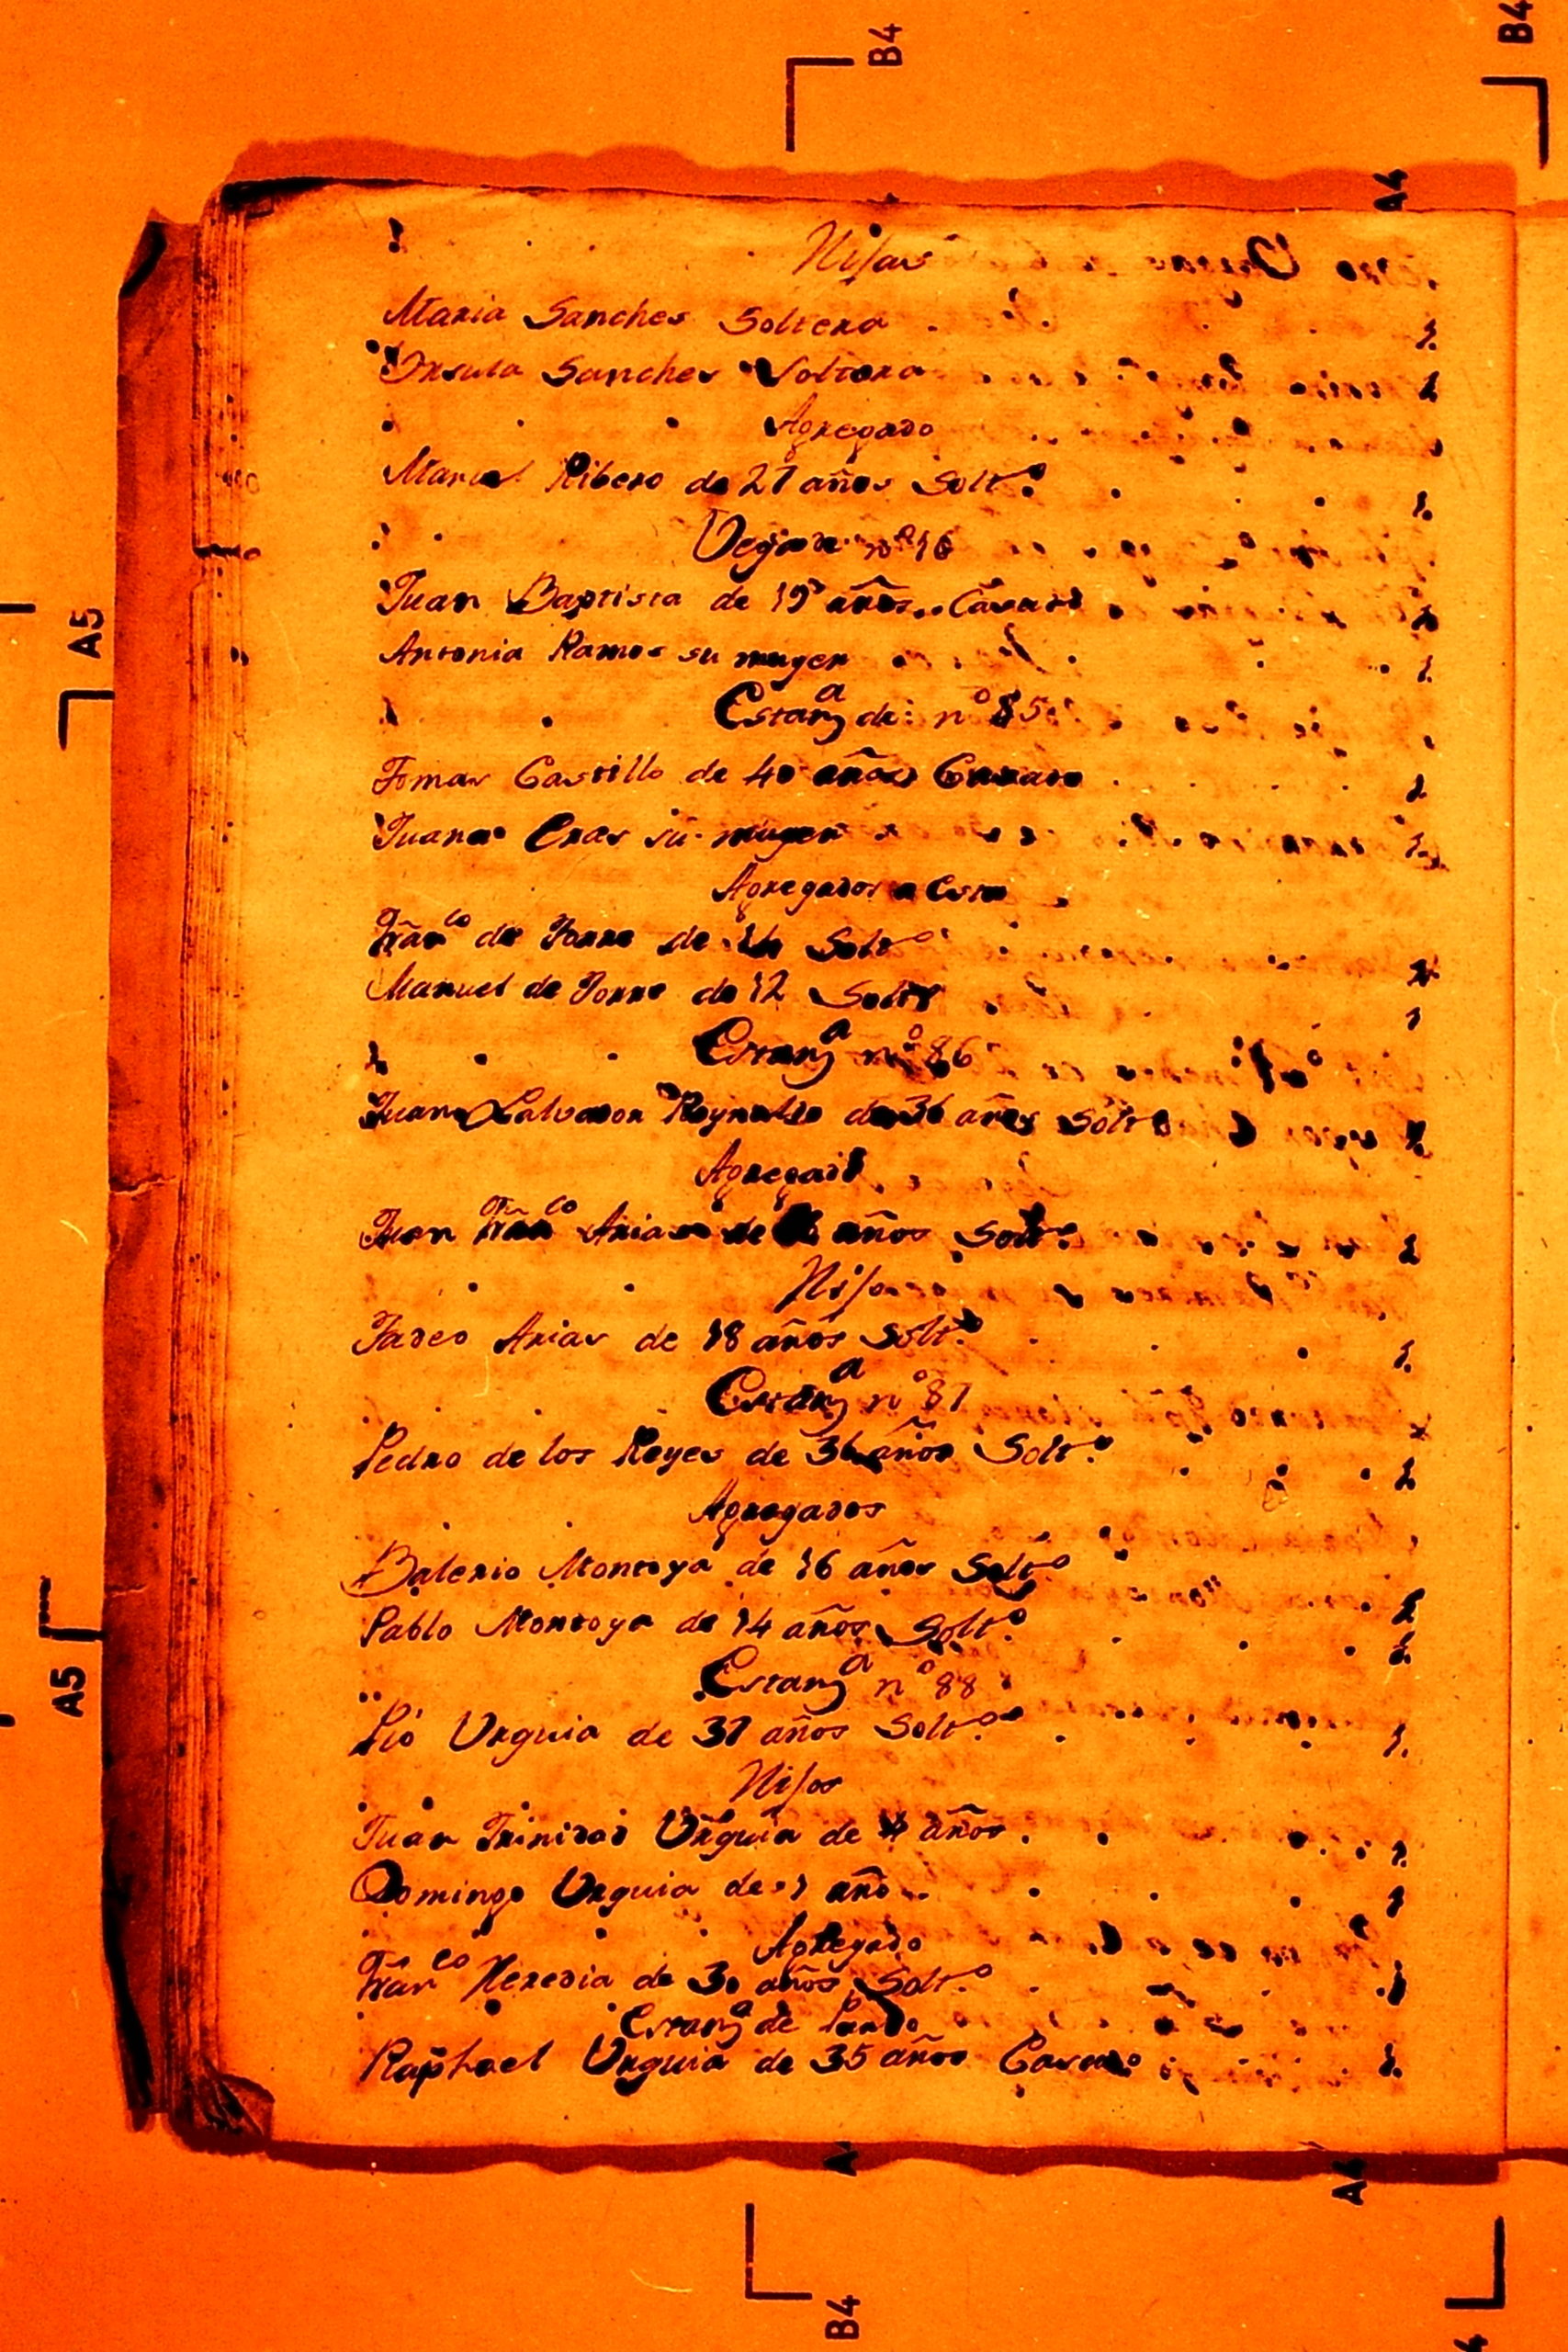 B4
B4
A4
Hijas
Maria Sanches Soltera 1.
Ursula Sanches Soltera 1
Agregado
Ribero de 27 años Solt.º 1.
nº 16
Juan Baptista de 19 años Casado 1
Antonia Ramos su muger 1.
Estanª de nº 85
Tomas Castillo de 40 años Casado 1
Juana Eras su muger 1.
Agregados a Esta
Franco de Torre de 14 Solto 1
Manuel de Torre de 12 Solto 1
Estanª nº 86
Juan Salvador Reynoldo de 36 años Solto 1
Agregado
Juan Franco Arias de años Solto. 1
Hijo
Tadeo Arias de 18 años Solt.º 1.
Estanª nº 87
Pedro de los Reyes de 36 años Solt.º 1
Agregados
Balerio Montoya de 16 años Solto 1
Pablo Montoya de 14 años Solt.º 1.
Estanª nº 88
Pio Urquia de 37 años Solt.º 1.
Hijos
Juan Trinidad Urquia de 4 años 1.
Domingo Urquia de 1 año 1
Agregado
Franco Heredia de 30 años Solt.º 1
Estanª de Pardo
Raphael Urquia de 35 años Casado 1.
A5
A5
A4
B4